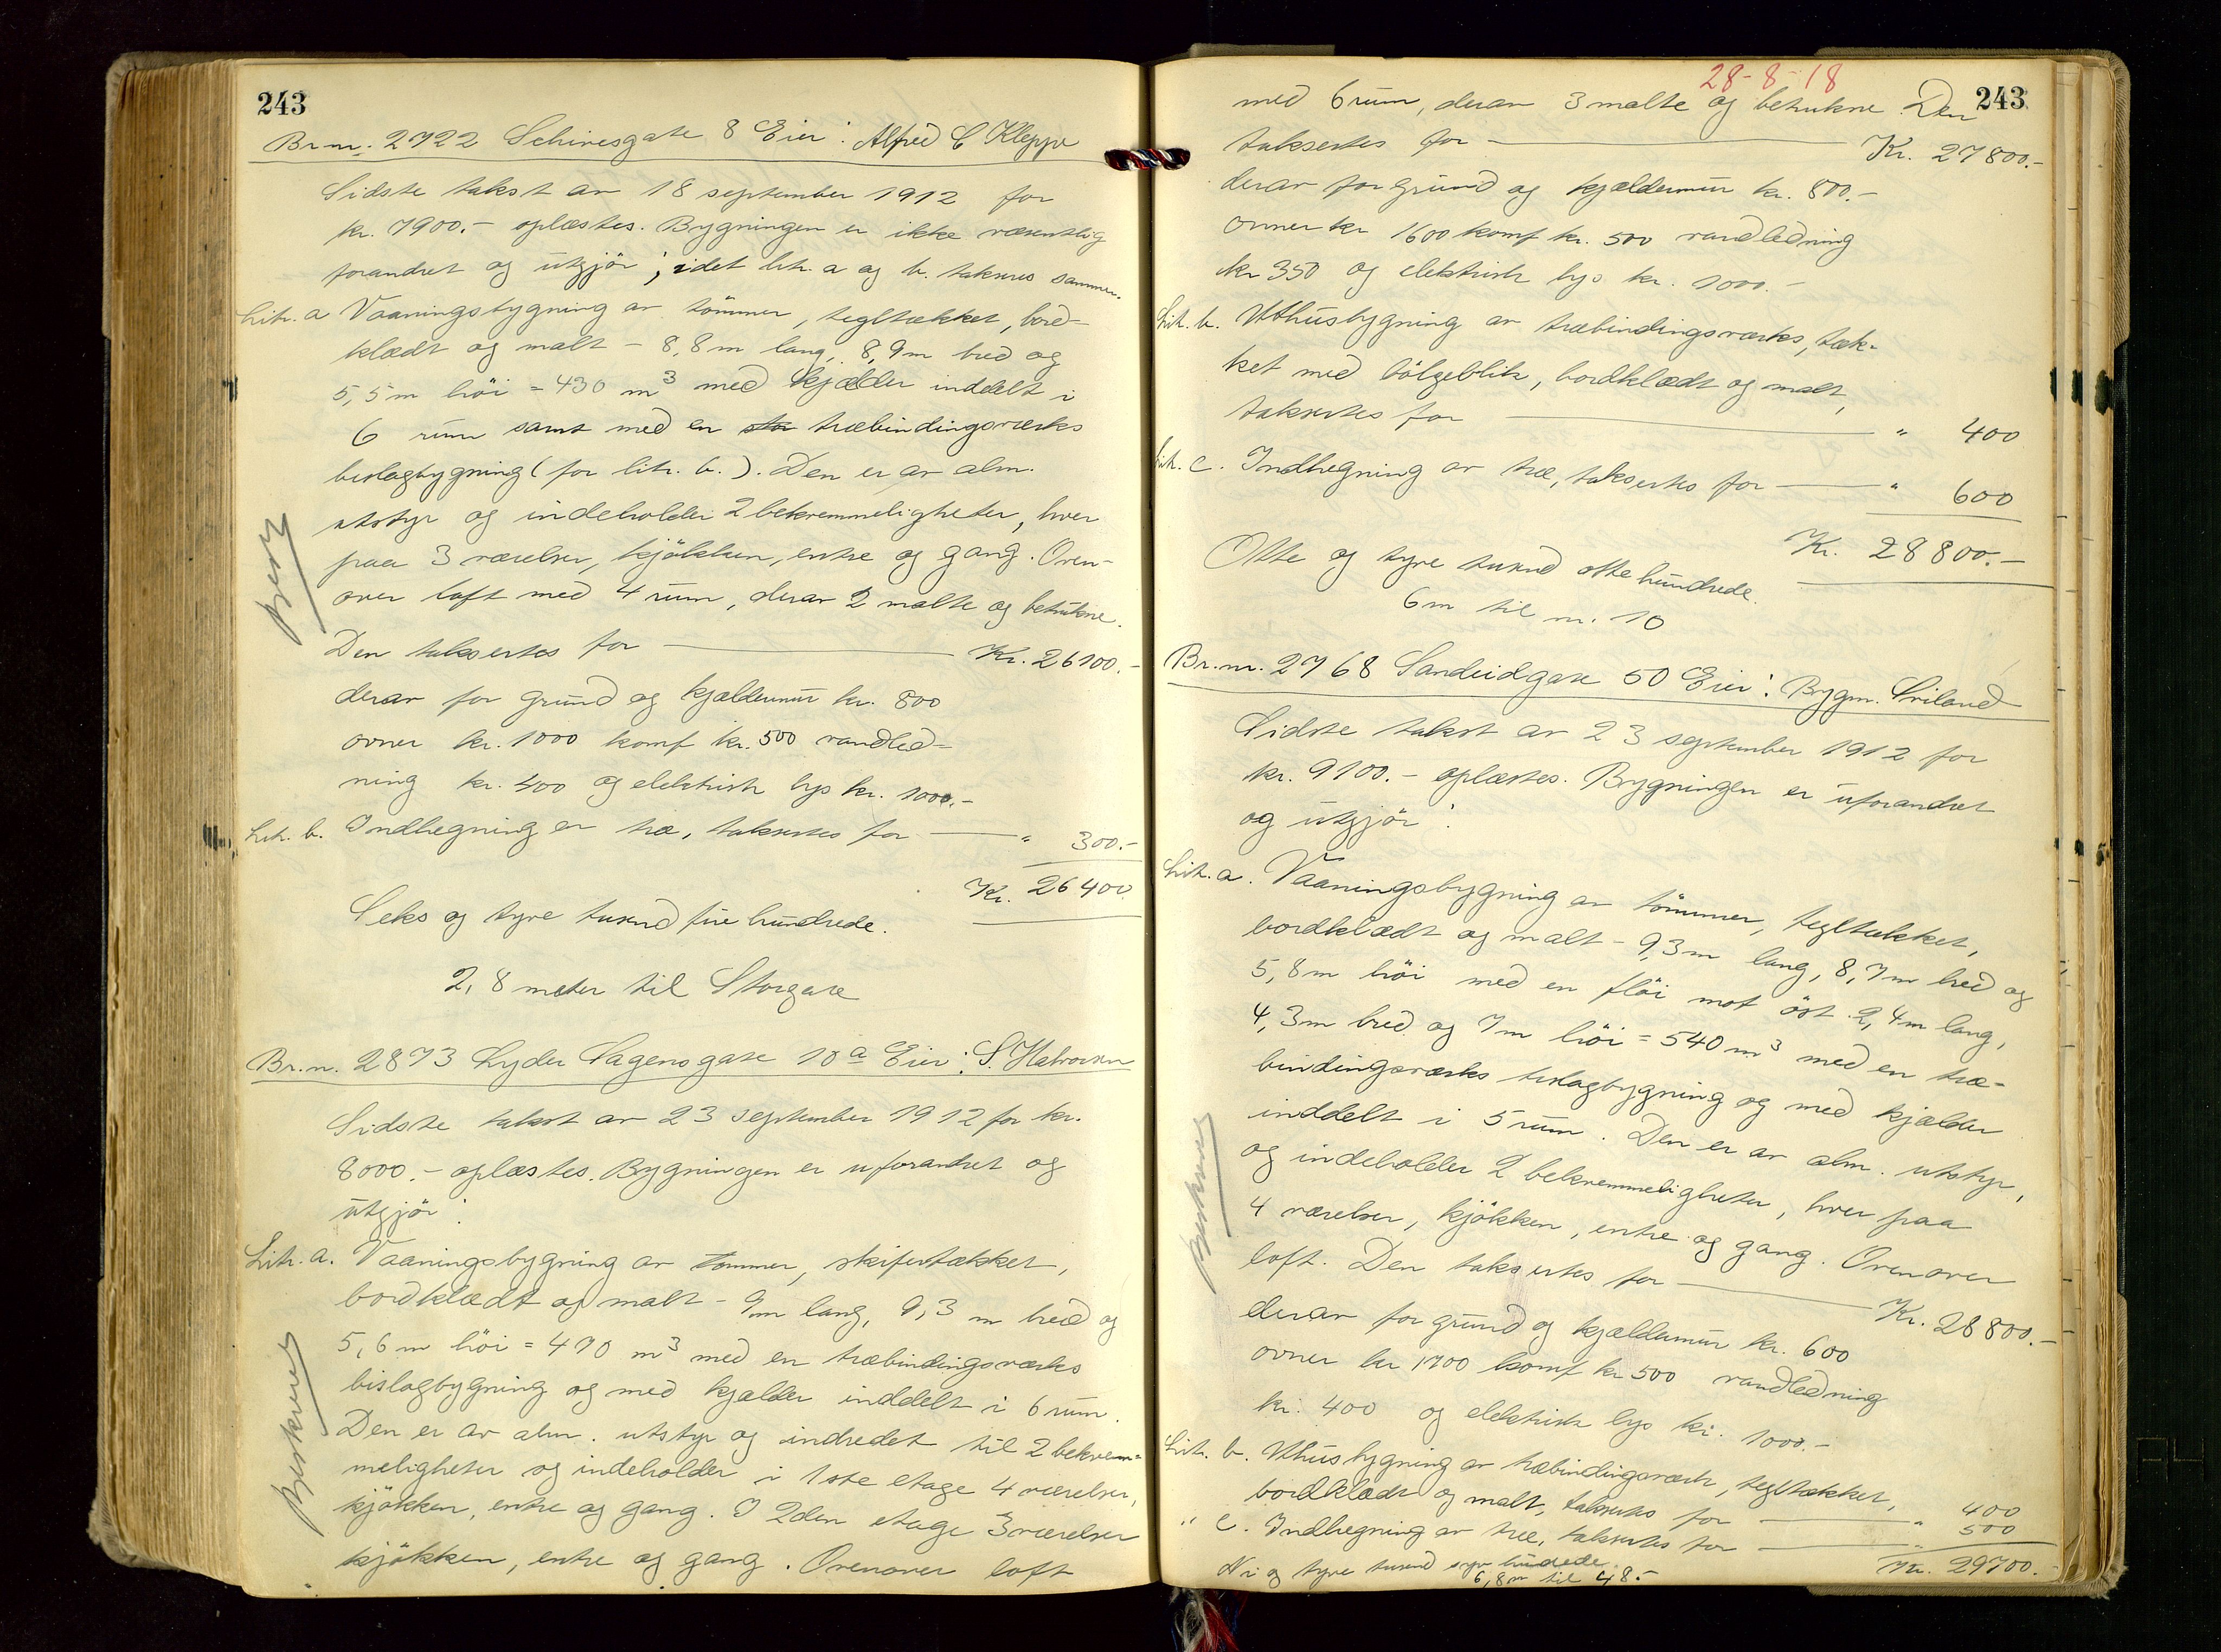 243
Br.nr. 2722 Schivesgate 8 Eier: Alfred C Kleppe
Sidste takst av 18 september 1912 for
kr. 7900.- oplæstes. Bygningen er ikke væsentlig
forandret og utgjör; idet litr. a og b. takseres sammen.
Litr. a Vaaningsbygning av tömmer, tegltækket, bord-
klædt og malt - 8,8 m lang, 8,9 m bred og
5,5 m höi = 430 m³ med kjælder inddelt i
6 rum samt med en træbindingsværks
bislagbygning (før litr. b.). Den er av alm.
utstyr og indeholder 2 bekvemmeligheter, hver
paa 3 værelser, kjökken, entre og gang. Oven-
over loft med 4 rum, derav 2 malte og betrukne.
Den taksertes for Kr. 26100.-
derav for grund og kjældermur kr. 800
ovner kr. 1000 komf kr. 500 vandled-
ning kr. 400 og elektrisk lys kr. 1000.-
Litr. b. Indhegning av træ, taksertes for " 300.-
Kr. 26400.
Seks og tyve tusend fire hundrede.
2,8 meter til Storgate
Br.n. 2873 Lyder Sagensgate 10a Eier: S. Halvorsen
Sidste takst av 23 september 1912 for kr.
8000.- oplæstes. Bygningen er uforandret og
utgjör:
Litr. a. Vaaningsbygning av tømmer, skifertækket,
bordklædt og malt - 9m lang, 9,3 m bred og
5,6 m höi = 470 m³ med en træbindingsværks
bislagbygning og med kjælder inddelt i 6 rum.
Den er av alm. utstyr og indredet til 2 bekvem=
meligheter og indeholder i 1ste etage 4 værelser,
kjökken, entre og gang. I 2den etage 3 værelser
kjökken, entre og gang. Ovenover loft
Beskrevet
28-8-18
243
med 6 rum, derav 3 malte og betrukne. Den
taksertes for Kr. 27800.-
derav for grund og kjældermur kr. 800.-
ovner kr 1600 komf kr. 500 vandledning
kr 350 og elektrisk lys kr. 1000.-
Litr. b. Uthusbygning av træbindingsværks, tæk-
ket med bölgeblik, bordklædt og malt,
taksertes for " 400
Litr. c. Indhegning av træ, taksertes for " 600
Kr. 28800.-
Otte og tyve tusend otte hundrede.
6m til nr. 10
Br.nr. 2768 Sandeidgate 50 Eier: Bygm. Sviland
Sidste takst av 23 september 1912 for
kr. 9100.- oplæstes. Bygningen er uforandret
og utgjör:
Litr. a. Vaaningsbygning av tömmer, tegltækket,
bordklædt og malt - 9,3m lang, 8,7m bred og
5,8m höi med en flöi mot öst 2,4m lang,
4,3m bred og 7m höi = 540 m³ med en træ-
bindingsværks bislagbygning og med kjælder
inddelt i 5 rum. Den er av alm. utstyr,
og indeholder 2 bekvemmeligheter, hver paa
4 værelser, kjökken, entre og gang. Ovenover
loft. Den taksertes for Kr. 28800.-
derav for grund og kjældermur kr. 600
ovner kr 1700 komf kr 500 vandledning
kr. 400 og elektrisk lys kr. 1000.-
Litr. b. Uthusbygning av træbindingsverk, tegltækket,
bordklædt og malt, taksertes for " 400
" c. Indhegning av træ, taksertes for " 500
Kr. 29700.-
Ni og tyve tusend syv hundrede.
6,8m til 48.-
Beskrevet